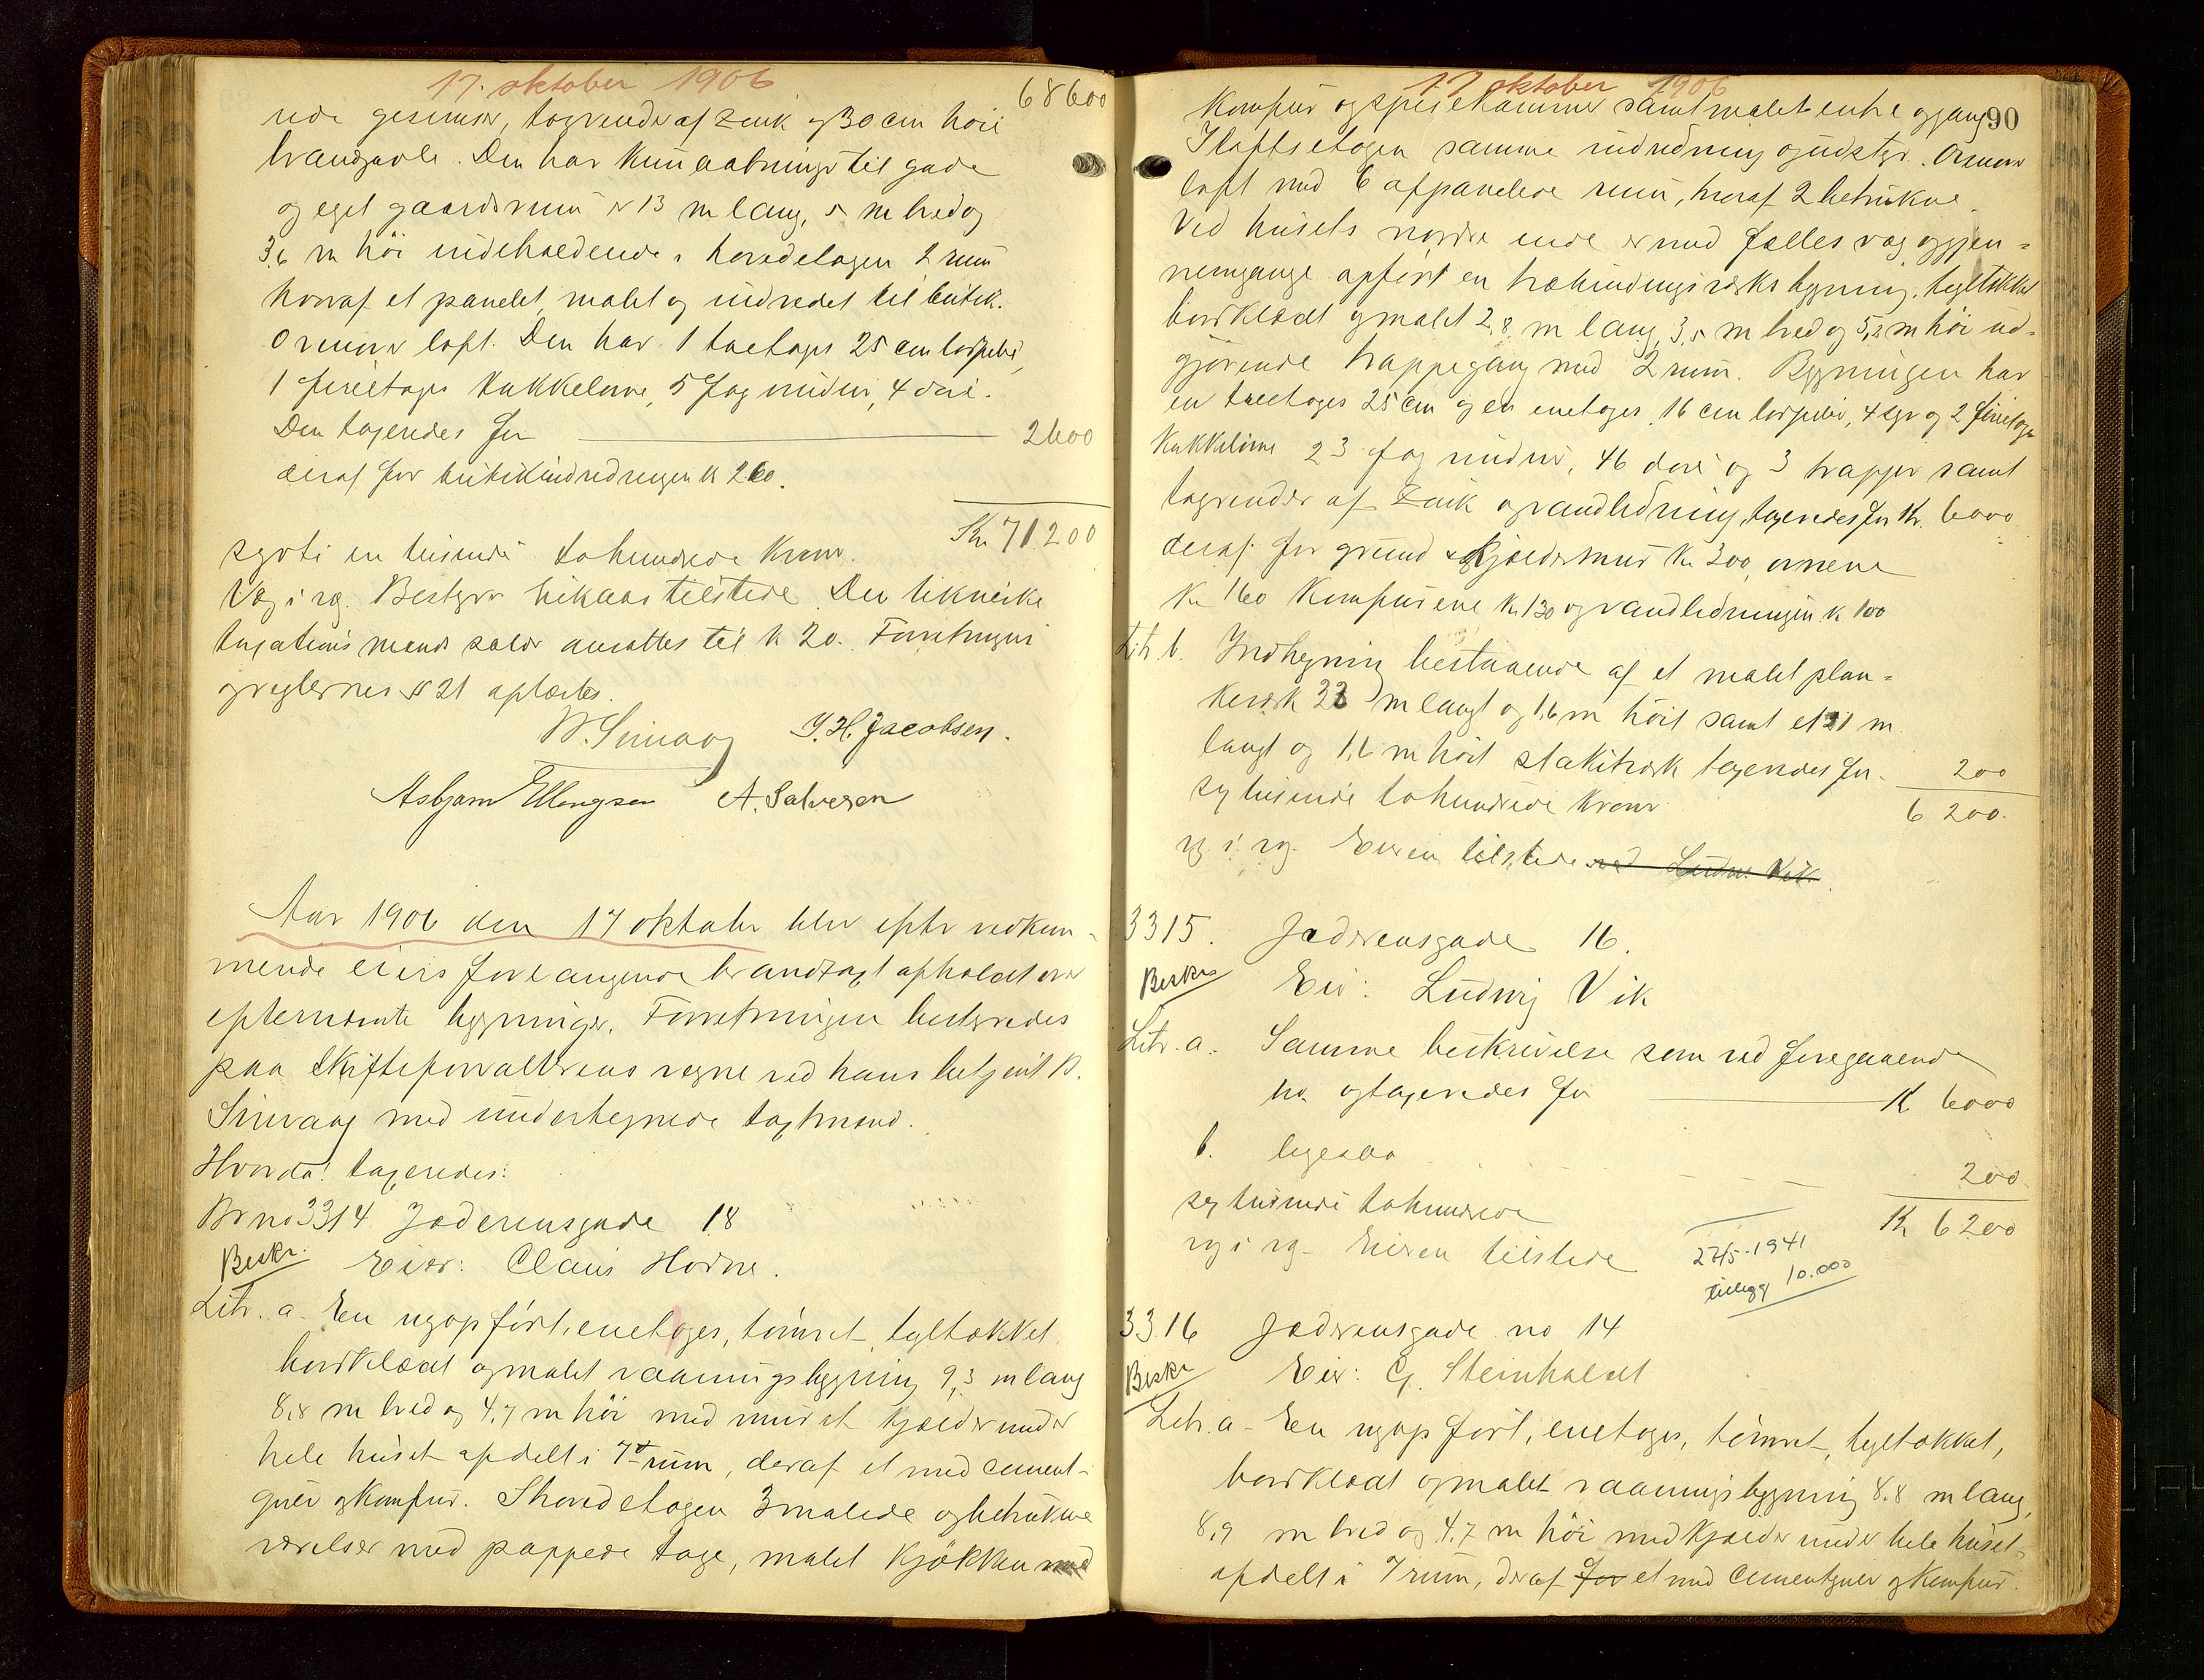 17. oktober 1906
68600
rede gesimser, tagrender af zink og 30 cm höie
brandgavle. Den har kun aabninger til gade
og eget gaardsrum er 13 m lang, 5 m bred og
3,6 m höi indeholdende i hovedetagen 2 rum
hvoraf et panelet, malet og indredet til butik.
Ovenover loft. Den har 1 toetages 25 cm torpedo,
1 fireetages kakkelovne, 5 fag vinduer, 4 döre.
Den taxeredes for 2600
deraf for butikindredningen k 260.
Kr 71.200
sytti en tusinde tohundrede Kroner.
Væg i væg. Bestyrer Vikaas tilstede. Den tekniske
taxations mands salær ansattes til k 20. Forretningen
og reglernes § 21 oplæstes.
W. Sirevaag J. H. Jacobsen.
Asbjørn Ellingsen A. Salvesen
Aar 1906 den 17 oktober blev efter vedkom-
mende eiers forlangende brandtaxt afholdt over
efternævnte bygninger. Forretningen bestyredes
paa Skifteforvalterens vegne ved hans betjent W.
Sirevaag med undertegnede taxtmænd.
Hvorda! taxeredes:
Br no 3314 Jæderensgade 18
Beskr. Eier: Claus Hodne.
Litr. a. En nyopført, enetages, tömret, tegltækket
bordklædt og malet vaaningsbygning 9,3 m lang
8,8 m bred og 4,7 m höi med muret kjælder under
hele huset afdelt i 7 rum, deraf et med cement-
gulv og komfur. I hovedetagen 3 malede og betrukne
værelser med pappede tage, malet kjökken med
17 oktober 1906
90
Komfur og spisekammer samt malet entre og gang
I loftsetagen samme indredning og udstyr. Ovenover
loft med 6 afpanelede rum, hvoraf 2 betrukne.
Ved husets nordre ende er med fælles væg og gjen=
nemgange opfört en træbindingsværks bygning, tegltækket
bordklædt og malet 2,8 m lang, 3,5 m bred og 5,2 m höi ud=
gjörende trappegang med 2 rum. Bygningen har
en toetages 25 cm og en enetages 16 cm torpedo, 4 syv og 2 fireetages
Kakkelovne 23 fag vinduer, 46 döre og 3 trapper samt
tagrender af zink og vandledning, taxeredes for Kr. 6000
deraf for grund & kjældermur Kr 300, ovnene
Kr 160 Komfurene Kr 130 og vandledningen k 100
Litr. b. Indhegning bestaaende af et malet plan=
keværk 32 m langt og 1,6 m höit samt et 21 m
langt og 1,6 m höit stakitværk taxeredes for 200
sex tusinde tohundrede Kroner 6 200.
væg i væg. Eieren tilstede ved Ludv. Vik.
3315. Jæderensgade 16.
Beskr Eier: Ludvig Vik
Litr. a. Samme beskrivelse som ved foregaaende
no. og taxeredes for K 6000
b. ligesaa 200
sex tusinde tohundrede K 6200
væg i væg. Eieren tilstede
27/5-1941
tillegg 10.000
3316 Jæderensgade no 14
Beskr Eier: G. Steinholdt
Litr. a. En nyopført, enetages, tömret, tegltækket,
bordklædt og malet vaaningsbygning 8.8 m lang,
8,9 m bred og 4,7 m höi med kjælder under hele huset
afdelt i 7 rum, deraf for et med cementgulv og komfur.